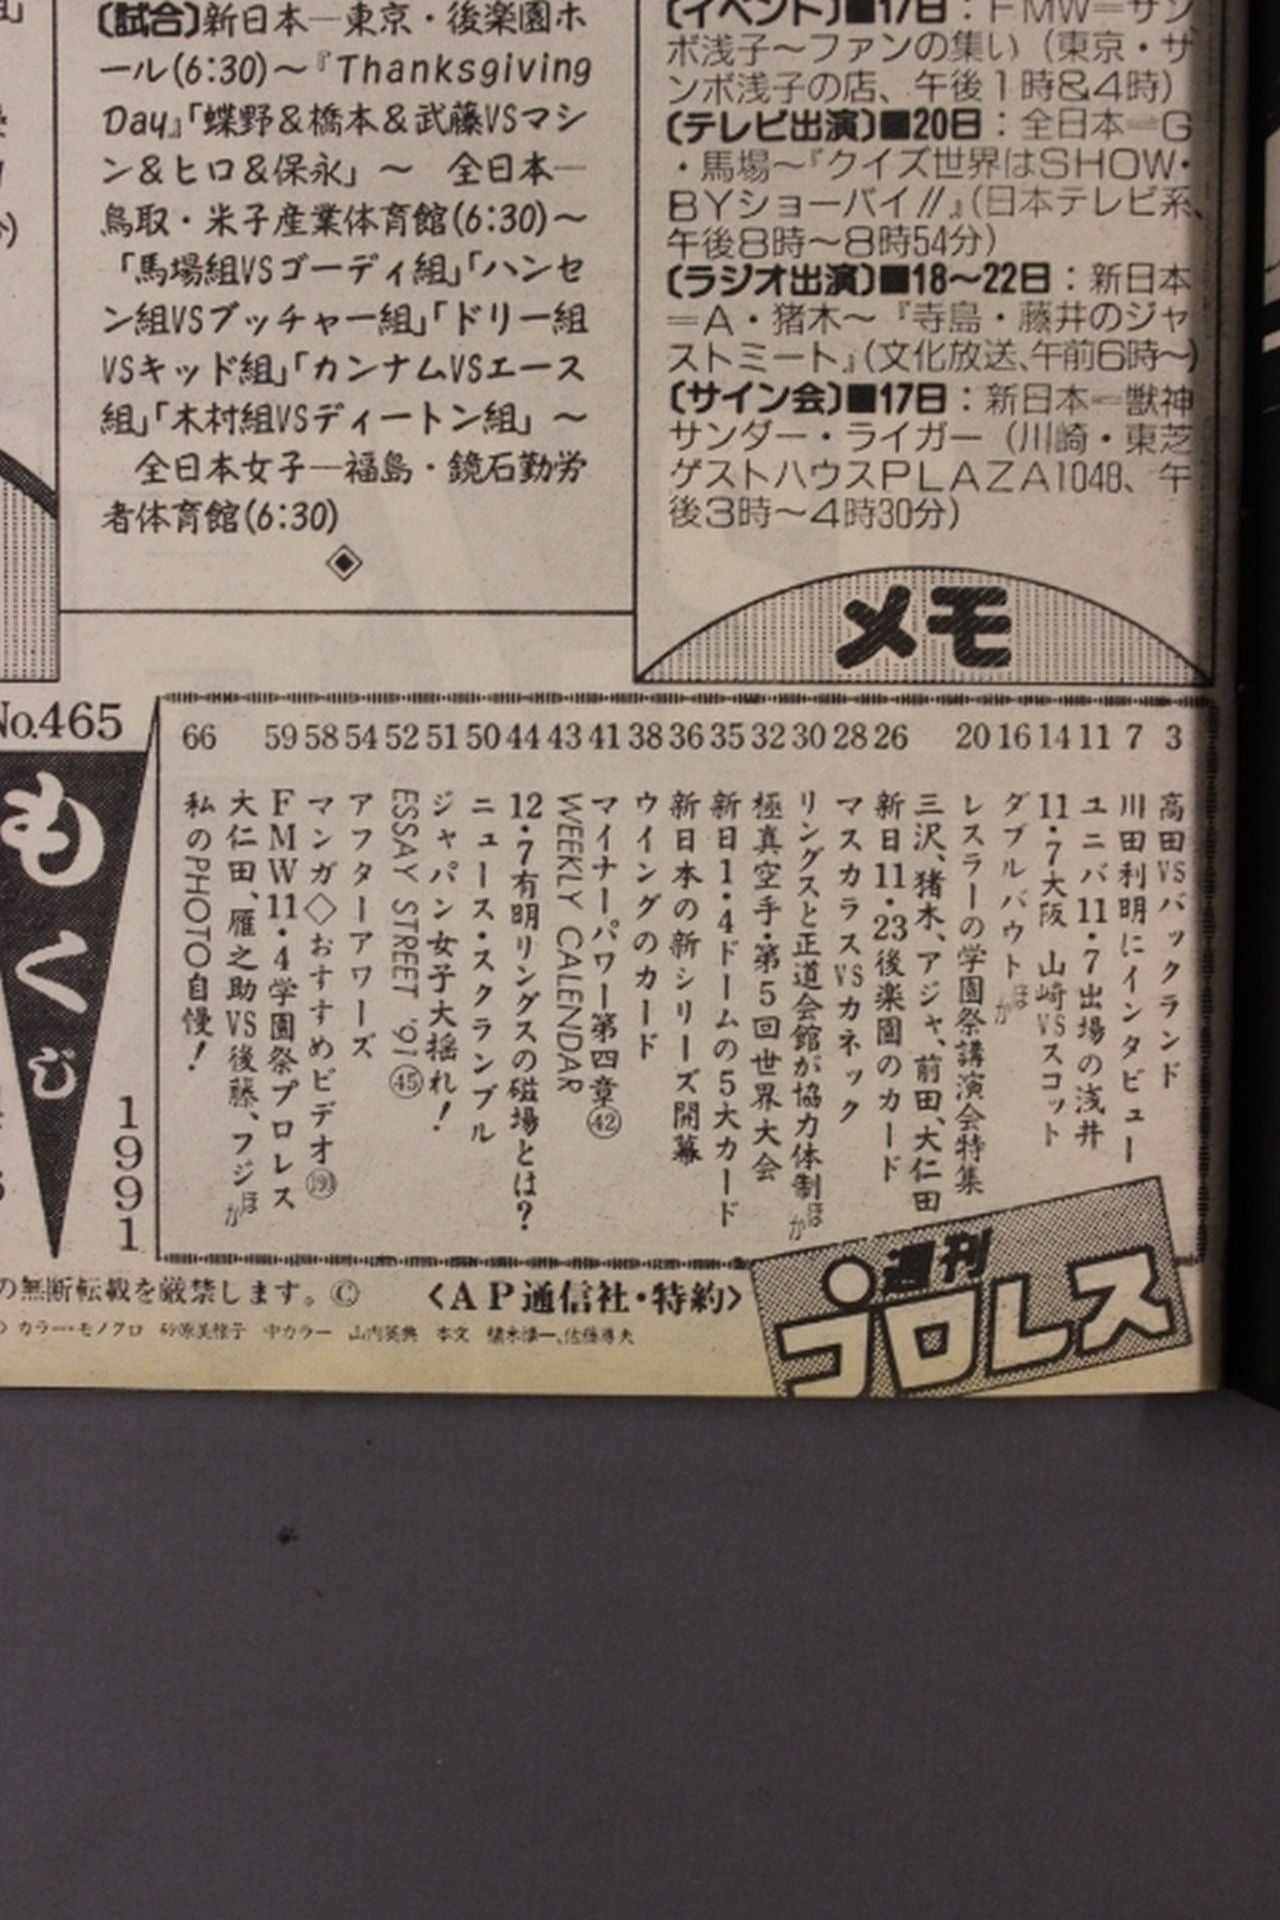 〔試合〕新日本―東京・後楽園ホ
ール(6:30)～『Thanksgiving
Day』「蝶野&橋本&武藤VSマシ
ン&ヒロ&保永」～ 全日本―
鳥取・米子産業体育館(6:30)～
「馬場組VSゴーディ組」「ハンセ
ン組VSブッチャー組」「ドリー組
VSキッド組」「カンナムVSエース
組」「木村組VSディートン組」～
全日本女子―福島・鏡石勤労
者体育館(6:30)
〔イベント〕■17日：FMW＝サン
ボ浅子～ファンの集い（東京・サ
ンボ浅子の店、午後1時&4時）
〔テレビ出演〕■20日：全日本＝G
・馬場～『クイズ世界はSHOW・
BYショーバイ!!』（日本テレビ系、
午後8時～8時54分）
〔ラジオ出演〕■18～22日：新日本
＝A・猪木～『寺島・藤井のジャ
ストミート』（文化放送、午前6時～）
〔サイン会〕■17日：新日本＝獣神
サンダー・ライガー（川崎・東芝
ゲストハウスPLAZA1048、午
後3時～4時30分）
メモ
No.465
もくじ
1991
3 高田VSバックランド
7 川田利明にインタビュー
11 ユニバ11・7出場の浅井
14 11・7大阪 山崎VSスコット
16 ダブルバウトほか
20 レスラーの学園祭講演会特集
三沢、猪木、アジャ、前田、大仁田
26 新日11・23後楽園のカード
28 マスカラスVSカネック
30 リングスと正道会館が協力体制ほか
32 極真空手・第5回世界大会
35 新日1・4ドームの5大カード
36 新日本の新シリーズ開幕
38 ウイングのカード
41 マイナーパワー第四章㊷
43 WEEKLY CALENDAR
44 12・7有明リングスの磁場とは？
50 ニュース・スクランブル
51 ジャパン女子大揺れ！
52 ESSAY STREET '91㊺
54 アフターアワーズ
58 マンガ◇おすすめビデオ
59 FMW11・4学園祭プロレス
大仁田、雁之助VS後藤、フジほか
66 私のPHOTO自慢！
の無断転載を厳禁します。©
〈AP通信社・特約〉
週刊
プロレス